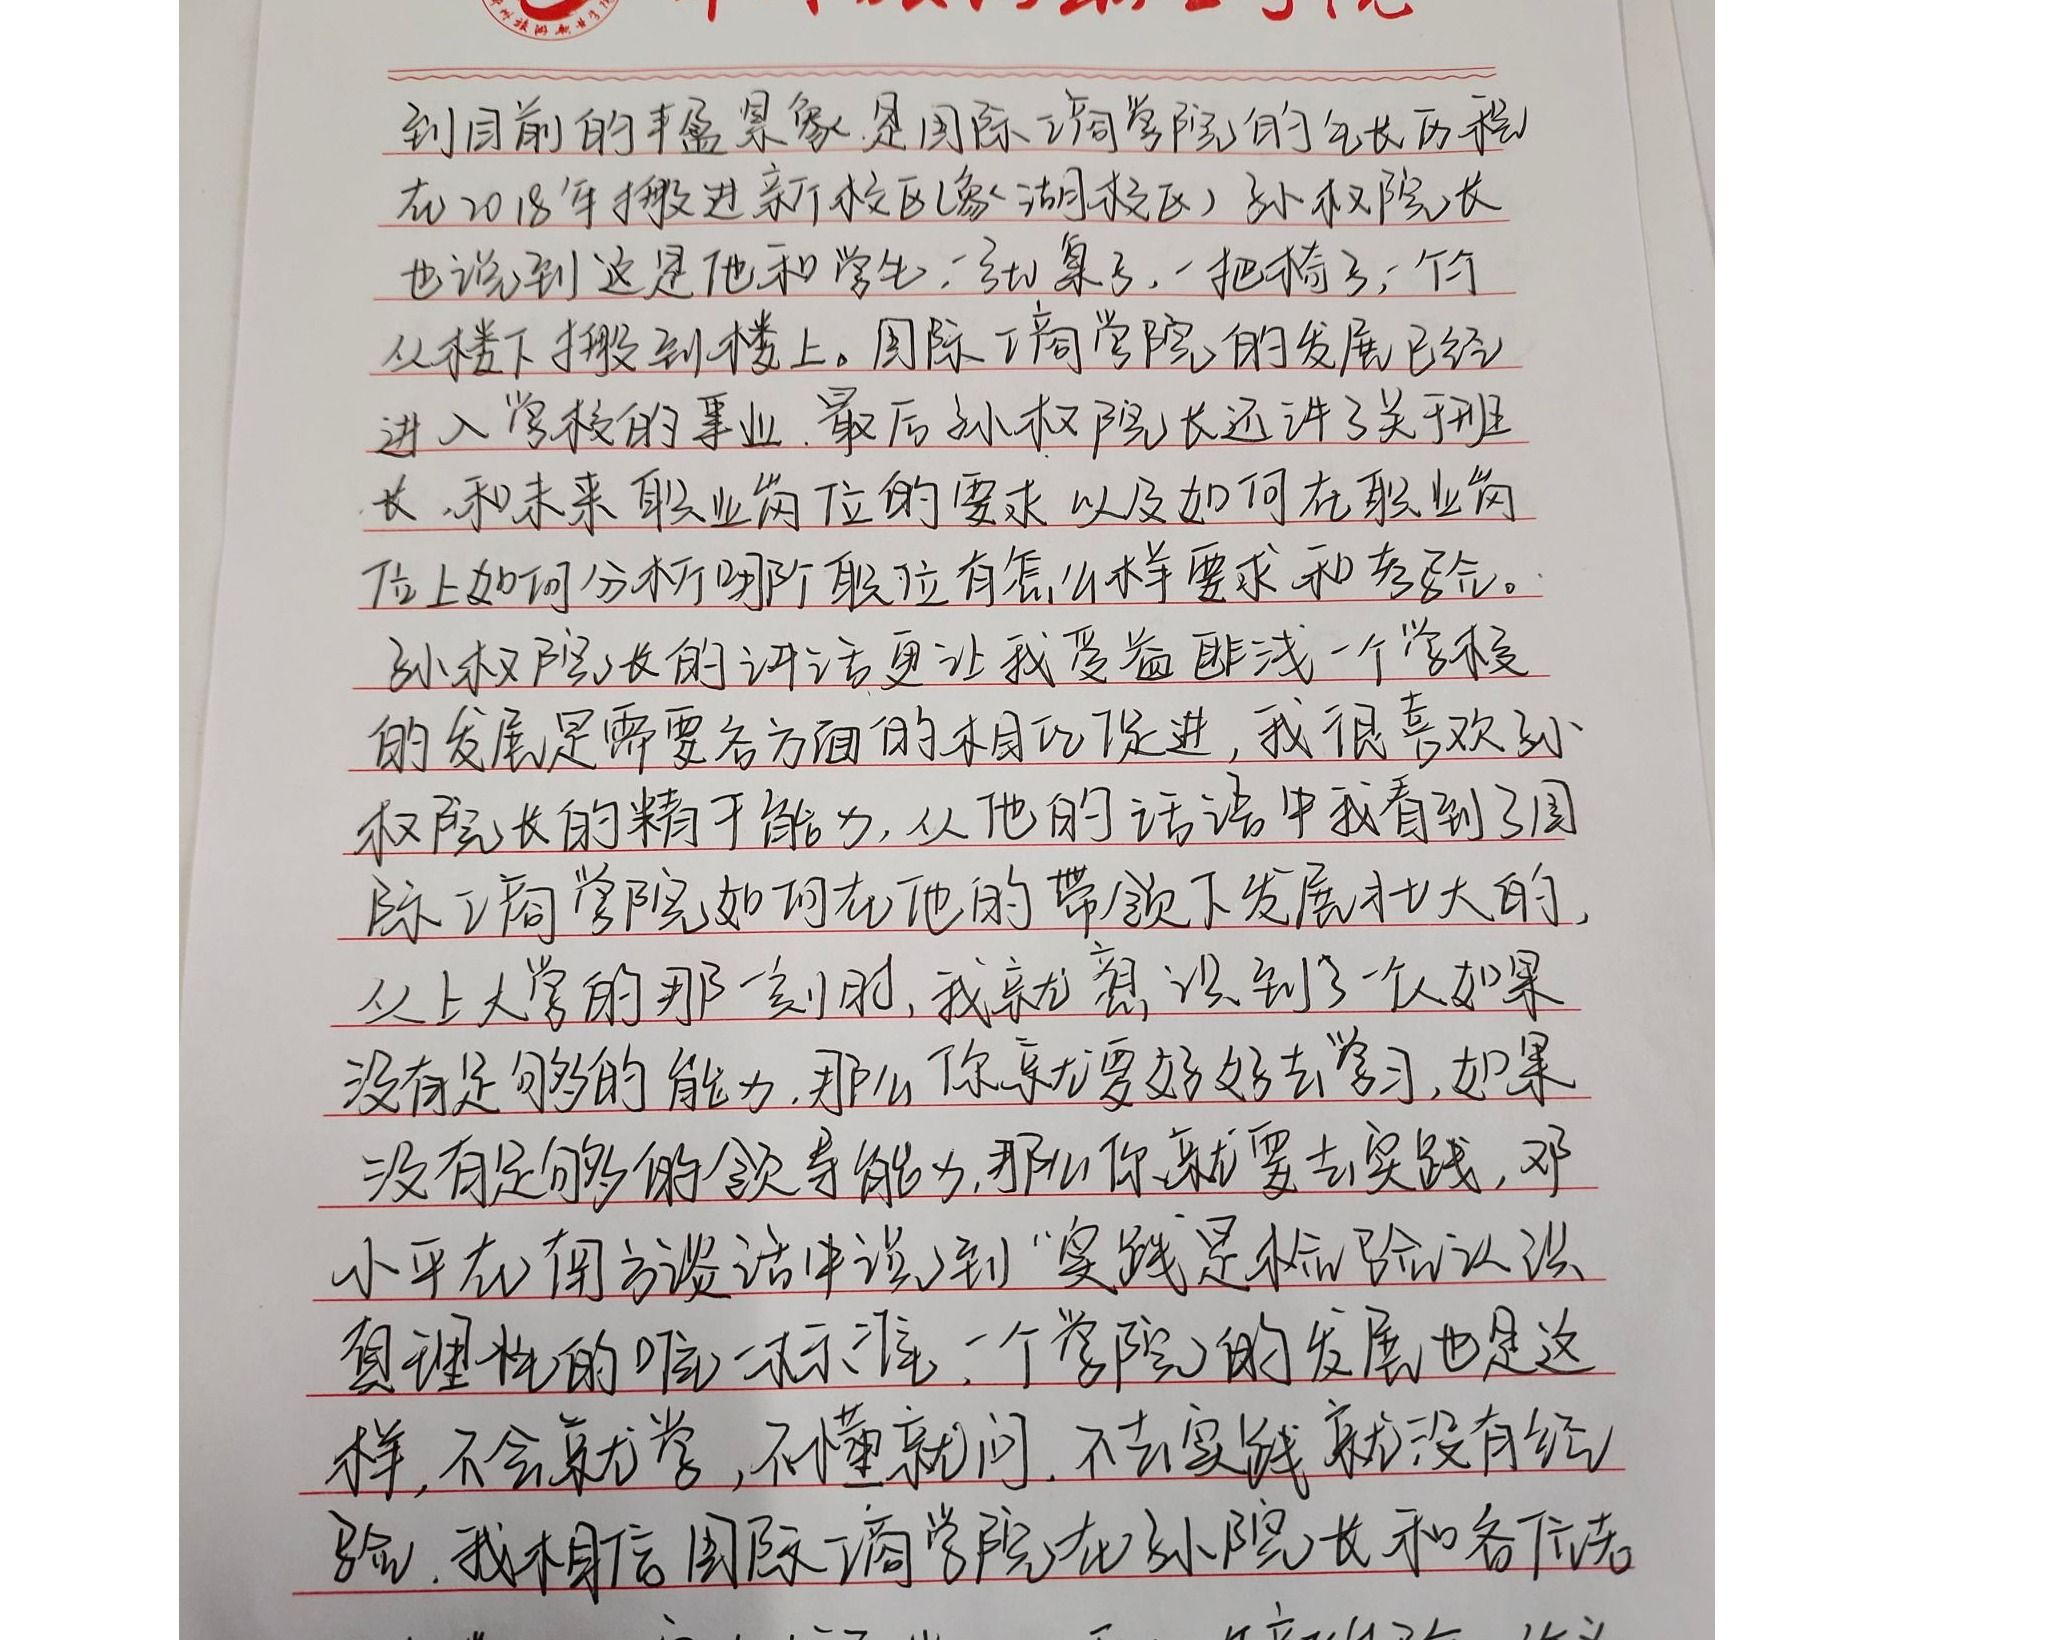 郑州旅游职业学院
到目前的丰盈景象.是国际工商学院的生长历程
在2018年搬进新校区(象湖校区)孙权院长
也说到这是他和学生,一张桌子,一把椅子,一个个
从楼下搬到楼上。国际工商学院的发展已经
进入学校的事业.最后孙权院长还讲了关于班
长.和未来职业岗位的要求 以及如何在职业岗
位上如何分析哪个职位有怎么样要求和考验。
孙权院长的讲话更让我受益匪浅一个学校
的发展是需要各方面的相互促进,我很喜欢孙
权院长的精干能力,从他的话语中我看到了国
际工商学院如何在他的带领下发展壮大的,
从上大学的那一刻时,我就意识到了一个人如果
没有足够的能力,那么你就要好好去学习,如果
没有足够的领导能力,那么你就要去实践,邓
小平在南方谈话中说到“实践是检验认识
真理性的唯一标准,一个学院的发展也是这
样,不会就学,不懂就问.不去实践就没有经
验.我相信国际工商学院在孙院长和各位老